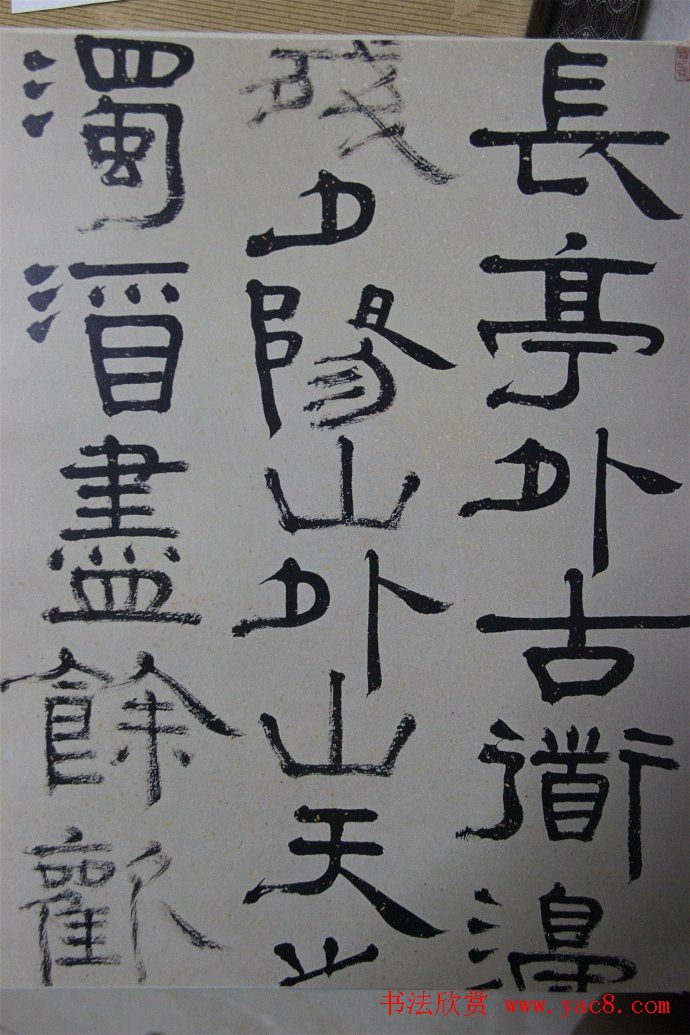 長亭外古衜邊
殘夕陽山外山天之
濁酒盡餘歡
书法欣赏 www.yac8.com